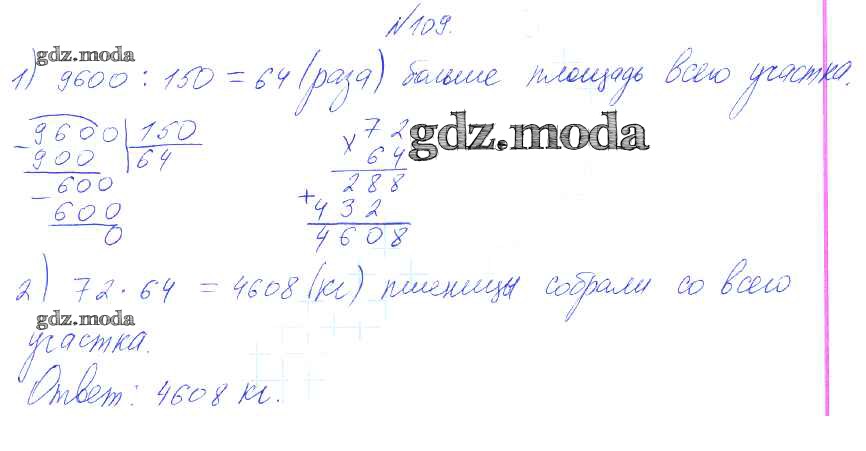 №109.
gdz.moda
1) 9600 : 150 = 64 (раза) больше площадь всего участка.
9600 | 150
- 900 | 64
- 600
600
0
× 72
64
+ 288
432
4608
gdz.moda
2) 72 · 64 = 4608 (кг) пшеницы собрали со всего
gdz.moda
участка.
Ответ: 4608 кг.